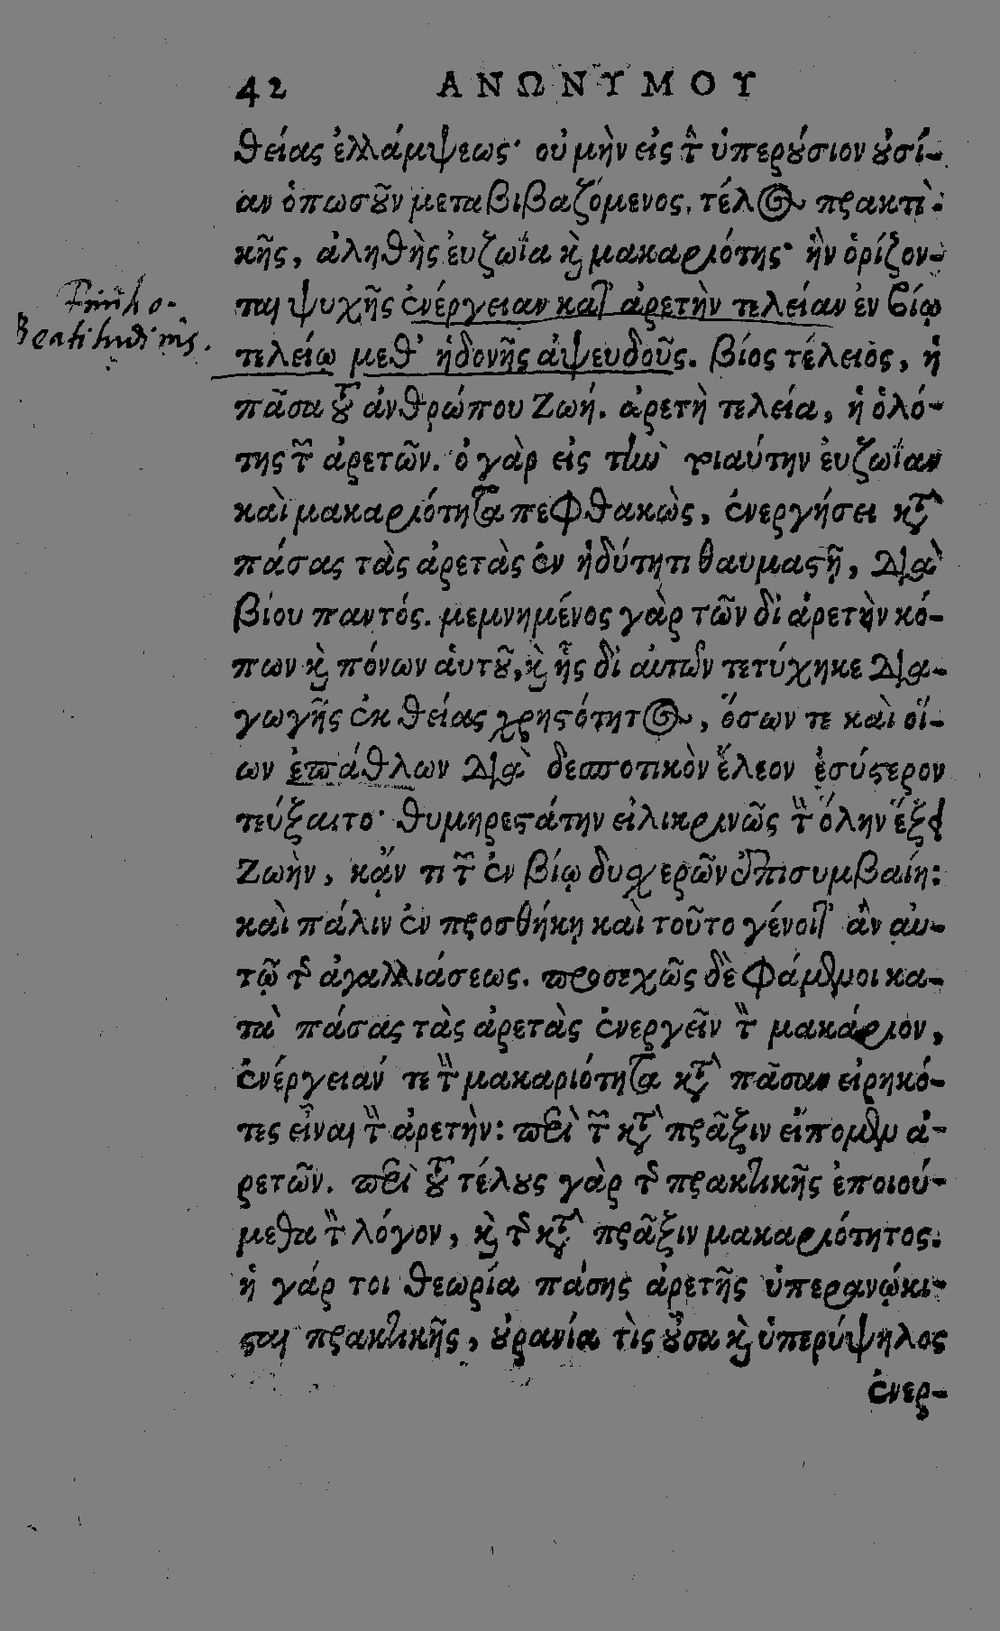 42 ΑΝΩΝΥΜΟΥ
θείας ἐλλάμψεως· οὐ μὴν εἰς τὴν ὑπερούσιον οὐσί-
αν ὁπωσοῦν μεταβιβαζόμενος. τέλος πρακτι-
κῆς, ἀληθὴς ἐυζωΐα καὶ μακαριότης· ἣν ὁρίζον-
ται ψυχῆς ἐνέργειαν κατ' ἀρετὴν τελείαν ἐν βίῳ
Beatitudinis.
τελείῳ μεθ' ἡδονῆς ἀψευδοῦς. βίος τέλειος, ἡ
πᾶσα τοῦ ἀνθρώπου Ζωή. ἀρετὴ τελεία, ἡ ὁλό-
της τῶν ἀρετῶν. ὁ γὰρ εἰς τὴν τοιαύτην ἐυζωΐαν
καὶ μακαριότητα πεφθακὼς, ἐνεργήσει κατὰ
πάσας τὰς ἀρετὰς ἐν ἡδύτητι θαυμαστῇ, διὰ
βίου παντός. μεμνημένος γὰρ τῶν δι ἀρετὴν κό-
πων καὶ πόνων ἁυτοῦ, καὶ ἧς δι αὐτῶν τετύχηκε δια-
γωγῆς ἐκ θείας χρηστότητος, ὅσων τε καὶ οἵ-
ων ἐπάθλων διὰ δεσποτικὸν ἔλεον ἐσύστερον
τεύξαιτο· θυμηρεστάτην εἰλικρινῶς τὴν ὅλην ἕξει
Ζωὴν, κᾄν τι τῶν ἐν βίῳ δυσχερῶν ἐπισυμβαίη:
καὶ πάλιν ἐν προσθήκῃ καὶ τοῦτο γένοιτ' ἂν αὐ-
τῷ τῆς ἀγαλλιάσεως. προσεχῶς δὲ φάμενοι κα-
τὰ πάσας τὰς ἀρετὰς ἐνεργεῖν τὸν μακάριον,
ἐνέργειάν τε τὴν μακαριότητα κατὰ πᾶσαν εἰρηκό-
τες εἶναι τὴν ἀρετὴν: περὶ τῶν κατὰ πρᾶξιν εἴπομεν ἀ-
ρετῶν. περὶ τοῦ τέλους γὰρ τῆς πρακτικῆς ἐποιού-
μεθα τὸν λόγον, καὶ τῆς κατὰ πρᾶξιν μακαριότητος.
ἡ γάρ τοι θεωρία πάσης ἀρετῆς ὑπερανῴκι-
σται πρακτικῆς, οὐρανία τὶς οὖσα καὶ ὑπερύψηλος
ἐνερ-